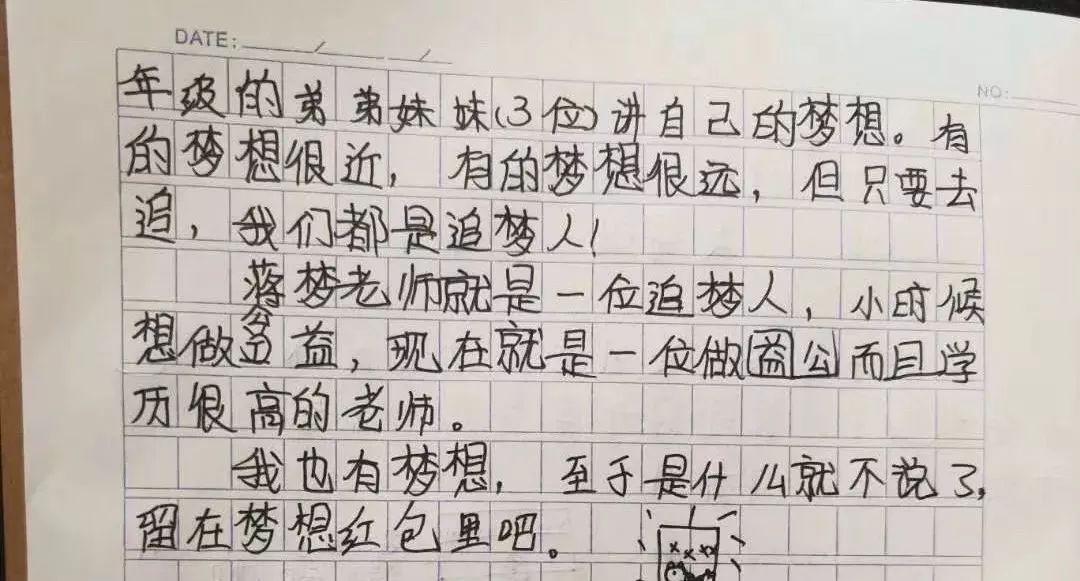 DATE:
NO:
年级的弟弟妹妹(3位)讲自己的梦想。有
的梦想很近,有的梦想很远,但只要去
追,我们都是追梦人!
蒋梦老师就是一位追梦人,小时候
想做公益,现在就是一位做益公而且学
历很高的老师。
我也有梦想,至于是什么就不说了,
留在梦想红包里吧。